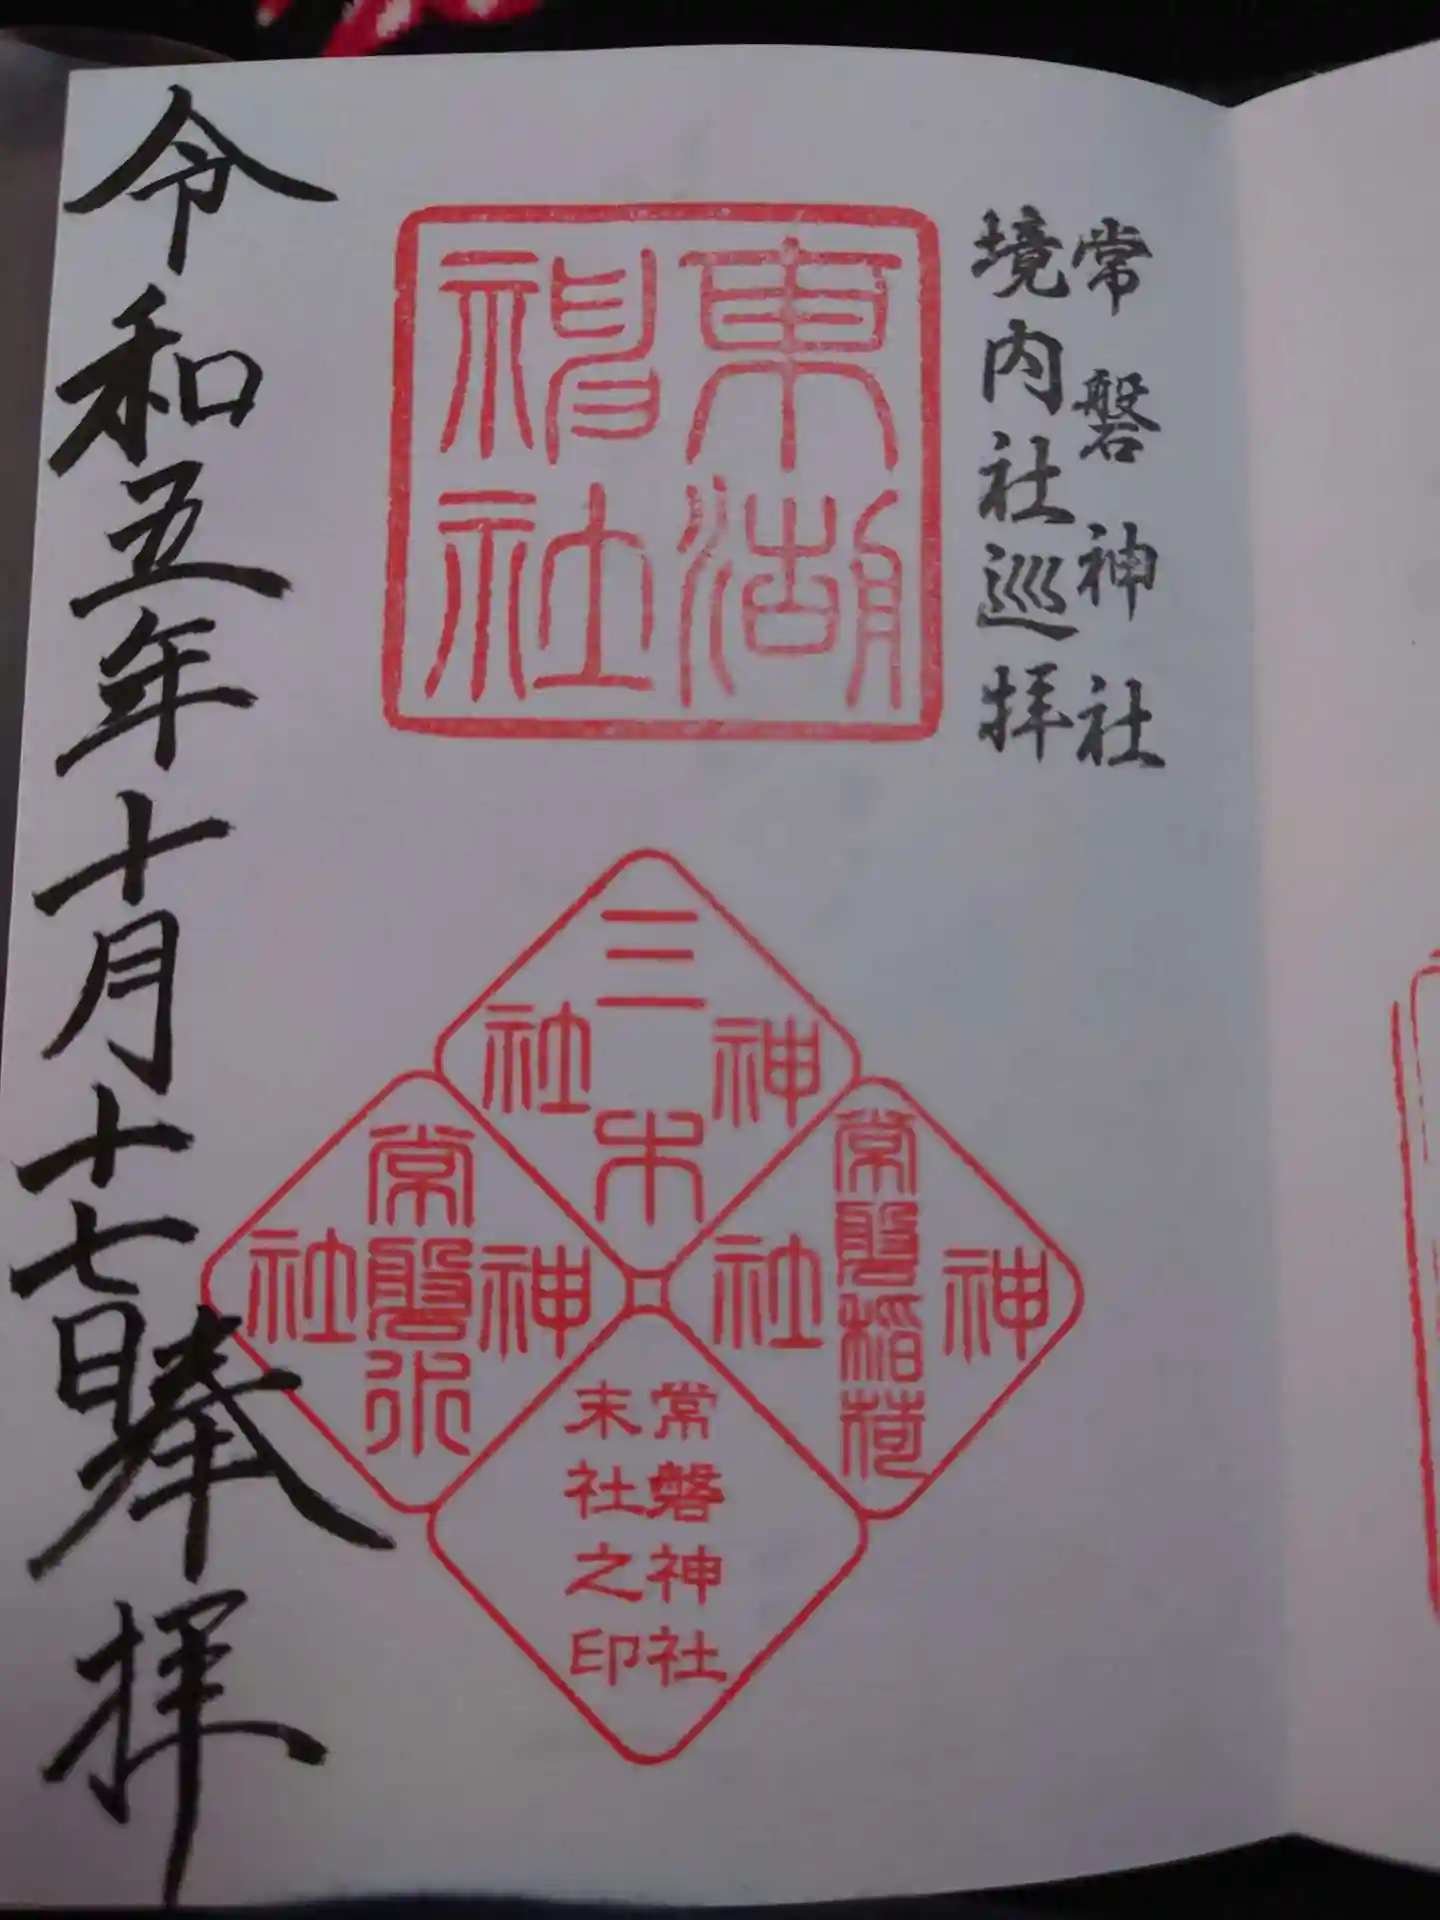 常磐神社
境内社巡拝
東湖
神社
三木
神社
常磐稲荷
神社
常磐
神社
常磐神社
末社之印
令和五年十月十七日奉拝